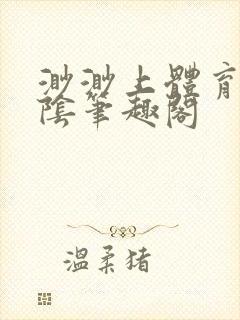 渺渺上體育
陰筆趣閣
温柔猪